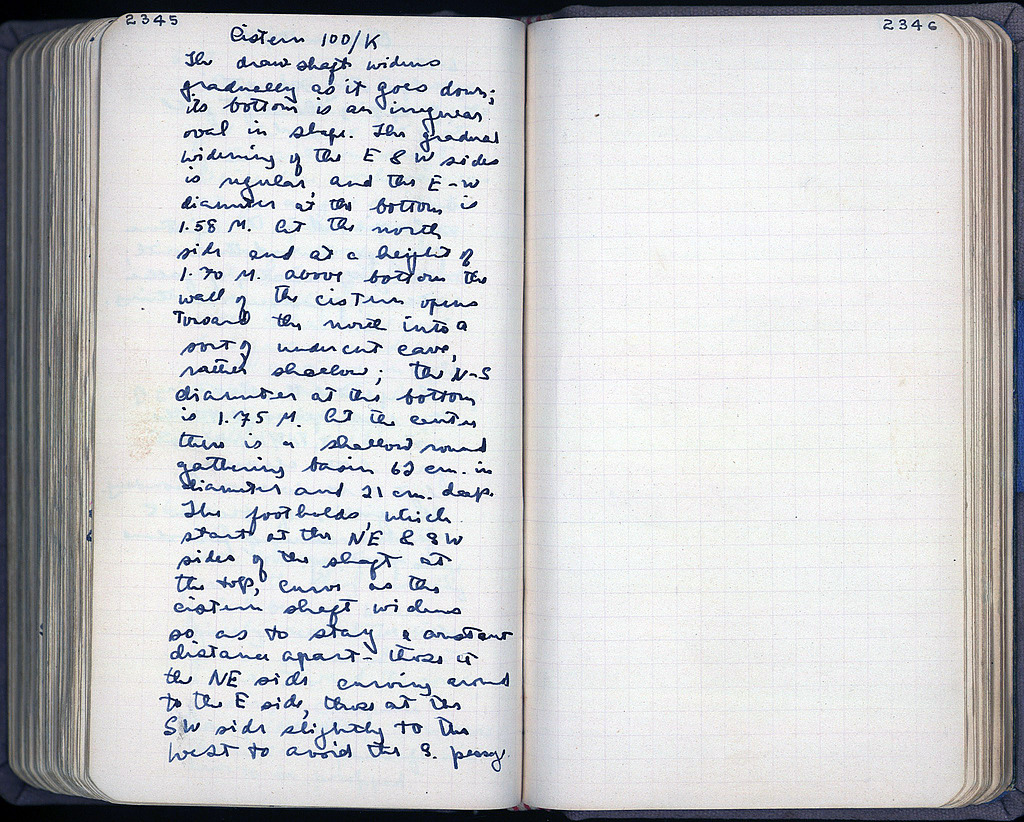 2345
Cistern 100/K
The draw shaft widens
gradually as it goes down;
its bottom is an irregular
oval in shape. The gradual
widening of the E & W sides
is regular, and the E-W
diameter at the bottom is
1.58 M. At the north
side and at a height of
1.70 M. above bottom the
wall of the cistern opens
toward the north into a
sort of undercut cave,
rather shallow; the N-S
diameter at the bottom
is 1.75 M. At the center
there is a shallow round
gathering basin 62 cm. in
diameter and 21 cm. deep.
The footholds, which
start at the NE & SW
sides of the shaft at
the top, curve as the
cistern shaft widens
so as to stay a constant
distance apart - those at
the NE side curving around
to the E side, those at the
SW side slightly to the
west to avoid the S.
2346